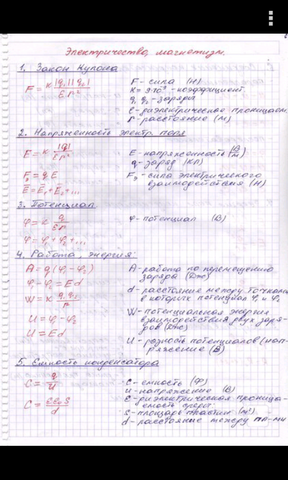 Электричество, магнетизм.
1. Закон Кулона
F = к |q₁||q₂| / εr²
F - сила (Н)
К = 9·10⁹ - коэффициент
q₁ q₂ - заряды
ε - диэлектрическая проницаем.
r - расстояние (м)
2. Напряженность электр. поля
E = к |q| / εr²
E - напряженность (В/м)
q - заряд (Кл)
Fэ = qE
Fэ - сила электрического взаимодействия (Н)
E = E₁ + E₂ + ...
3. Потенциал
φ = к q / εr
φ - потенциал (В)
φ = φ₁ + φ₂ + ...
4. Работа, энергия:
A = q(φ₁ - φ₂)
A - работа по перемещению
заряда (Дж)
φ₁ - φ₂ = Ed
d - расстояние между точками
в которых потенциал φ₁ и φ₂
W = к q₁ q₂ / r
W - потенциальная энергия
взаимодействия двух заря-
дов (Дж)
U = φ₁ - φ₂
U - разность потенциалов (нап-
ряжение (В)
U = Ed
5. Емкость конденсатора
C = q / U
C - емкость (Ф)
U - напряжение (В)
C = εε₀S / d
ε - диэлектрическая проница-
емость среды
S - площадь пластин (м²)
d - расстояние между пл-ми